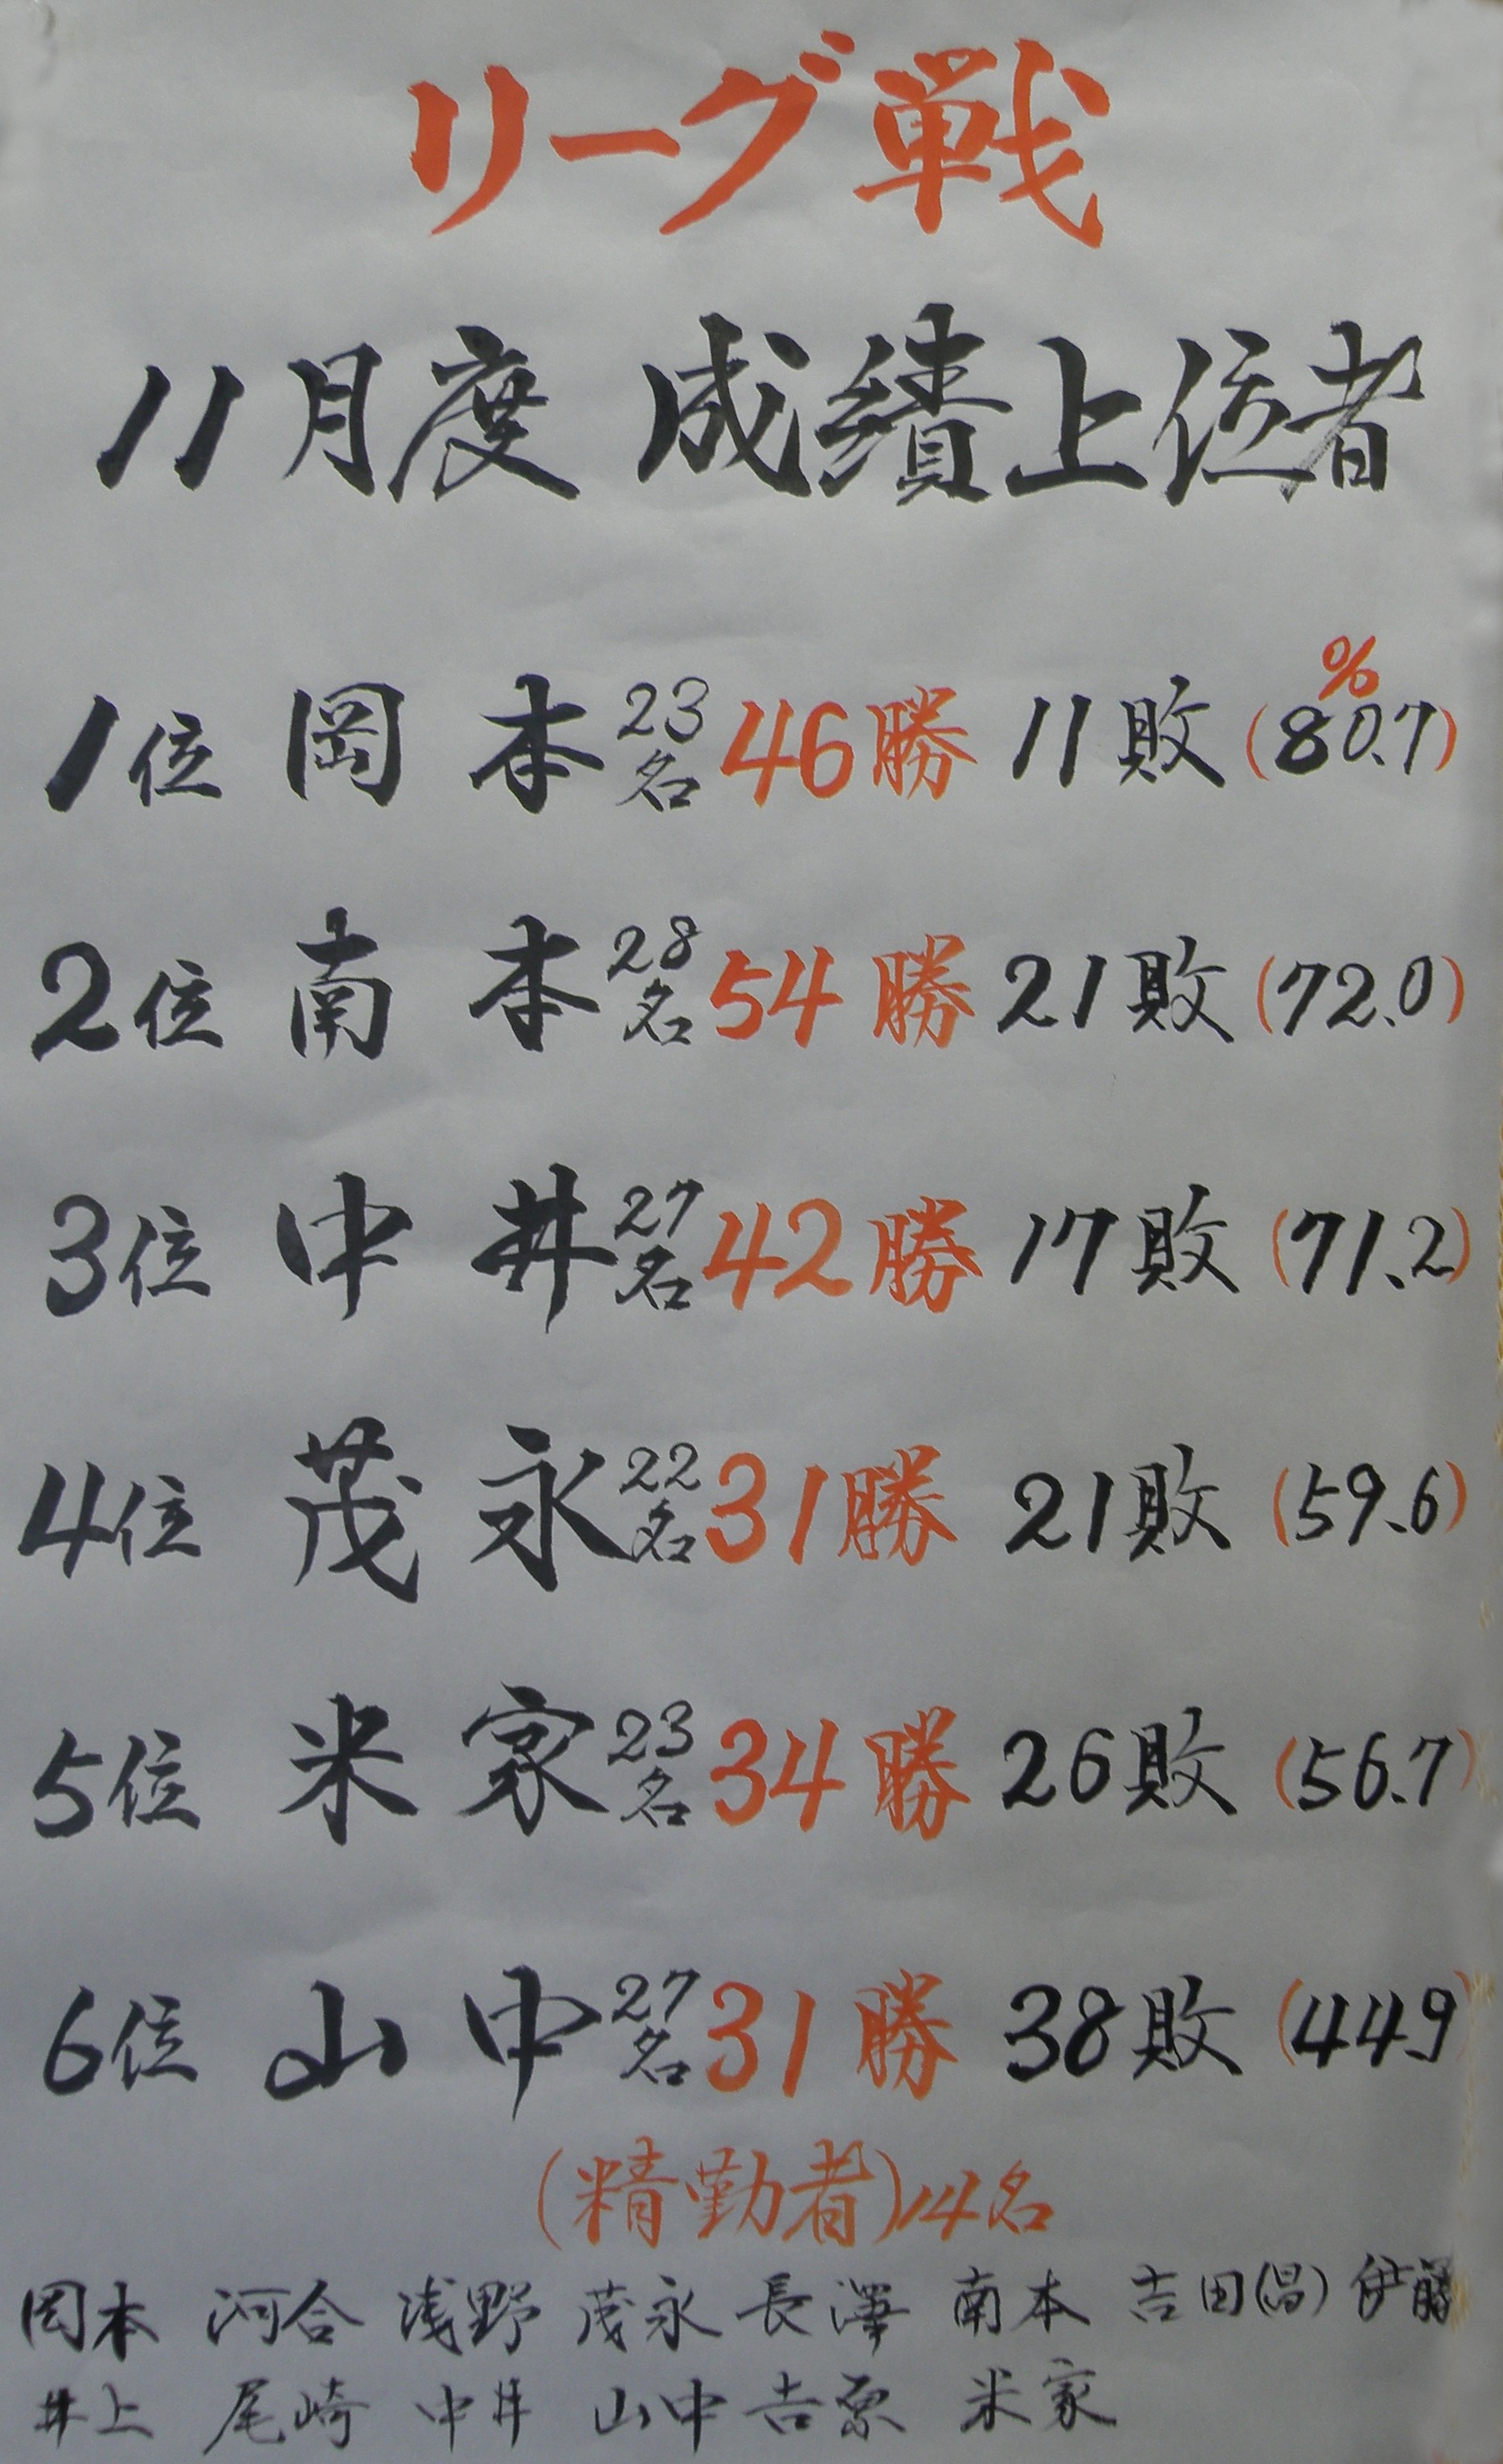 リーグ戦
11月度 成績上位者
1位 岡本 23名 46勝 11敗 (80.7%)
2位 南本 28名 54勝 21敗 (72.0)
3位 中井 27名 42勝 17敗 (71.2)
4位 茂永 22名 31勝 21敗 (59.6)
5位 米家 23名 34勝 26敗 (56.7)
6位 山中 27名 31勝 38敗 (44.9)
(精勤者)14名
岡本 河合 浅野 茂永 長澤 南本 吉田(昌) 伊藤
井上 尾崎 中井 山中 吉原 米家